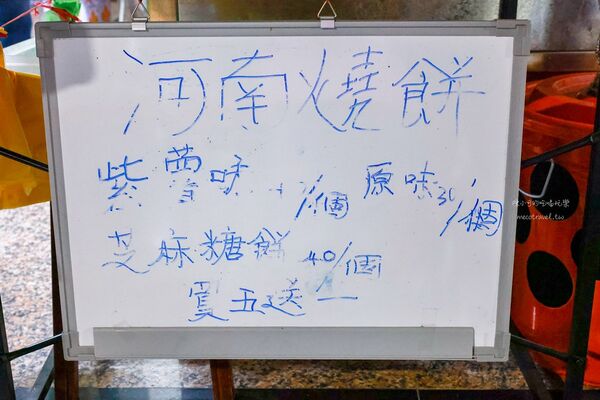 河南燒餅
紫薯味 /個 原味30/個
芝麻糖餅 40/個
買五送一
mecotravel.tw